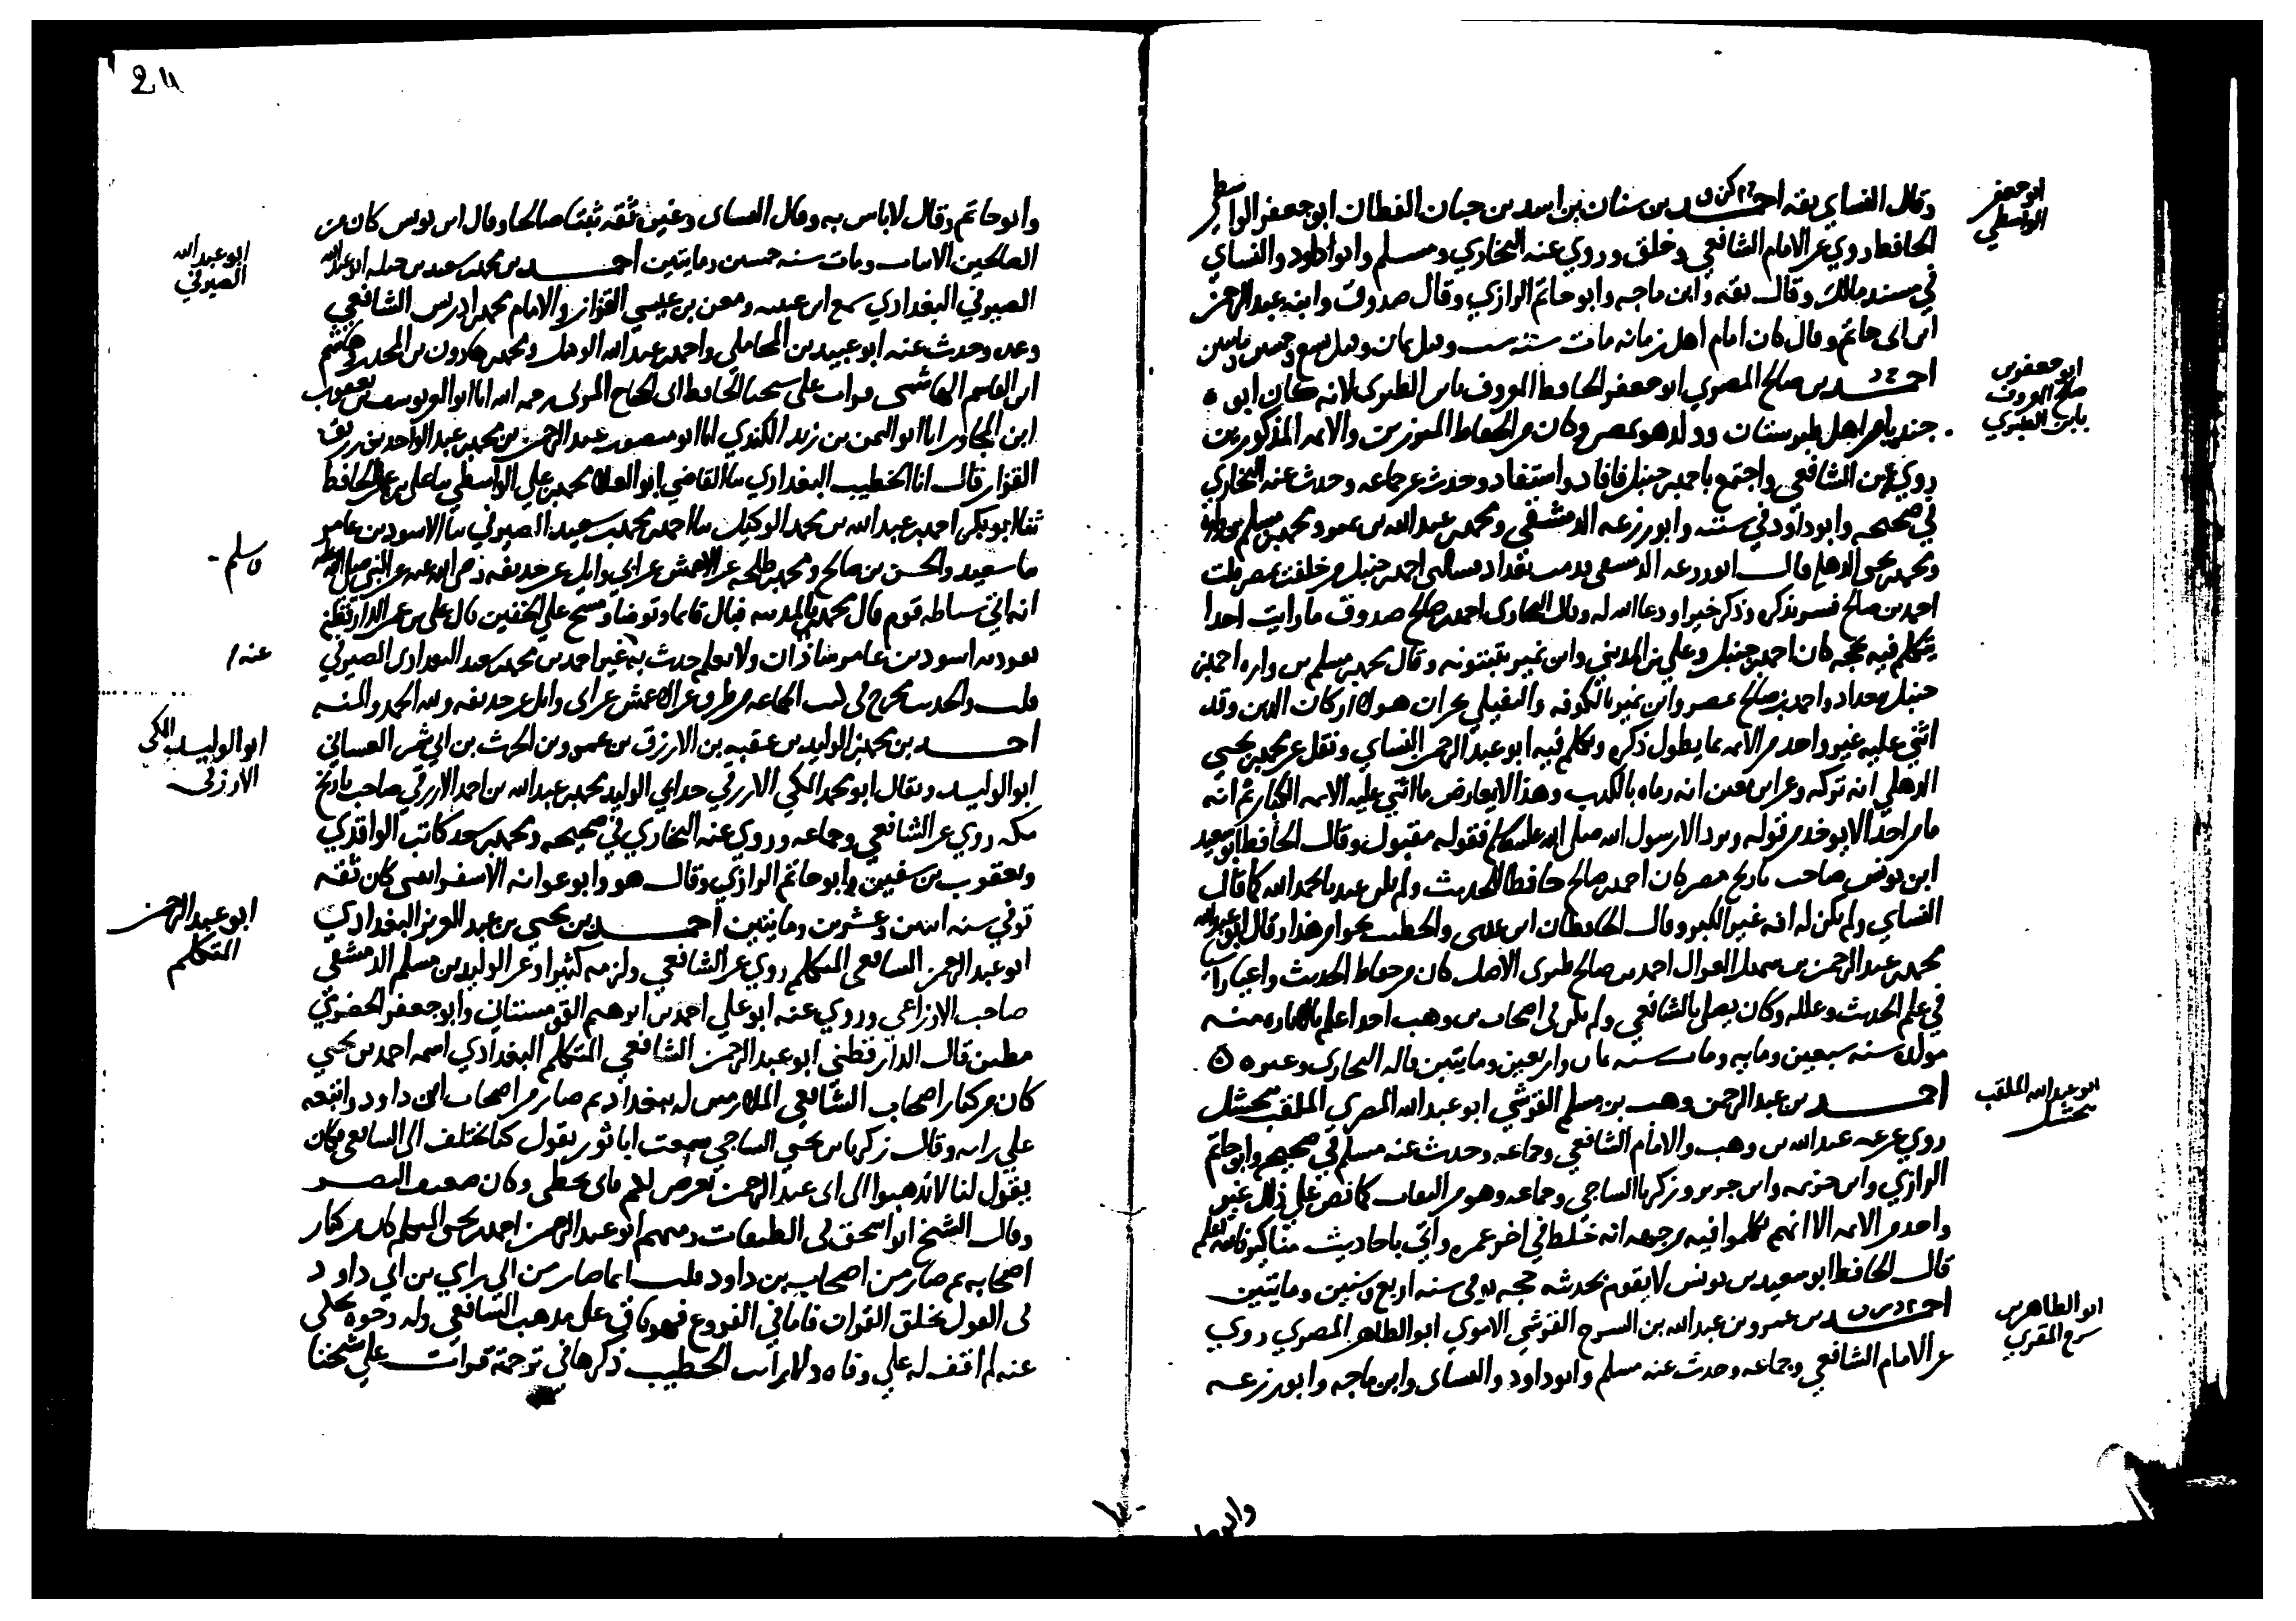 ابو جعفر
الواسطي
وقال النساي ثقه احمد بن سنان بن اسد بن حبان القطان ابو جعفر الواسطي
الحافظ روي عن الامام الشافعي وخلق وروي عنه البخاري ومسلم وابو داود والنساي
في مسند مالك وقال ثقه وابن ماجه وابو حاتم الرازي وقال صدوق وابنه عبد الرحمن
ابن ابي حاتم وقال كان امام اهل زمانه مات سنه ست وقيل ثمان وقيل تسع وخمسين ومايتين
ابو جعفر بن
صالح المعروف
بابن الطبري
احمد بن صالح المصري ابو جعفر الحافظ المعروف بابن الطبري لانه كان ابوه
جنديا من اهل طبرستان وولد هو بمصر وكان من الحفاظ المبرزين والائمه المذكورين
روي عن الشافعي واجتمع باحمد بن حنبل فافاد واستفاد وحدث عن جماعه وحدث عنه البخاري
في صحيحه وابو داود في سننه وابو زرعه الدمشقي ومحمد بن عبد الله بن نمير ومحمد بن مسلم بن واره
ومحمد بن يحيى الذهلي قال ابو زرعه الدمشقي قدمت بغداد فسالني احمد بن حنبل من خلفت بمصر قلت
احمد بن صالح فسر بذكره وذكر خيرا ودعا الله له وقال البخاري احمد بن صالح صدوق ما رايت احدا
يتكلم فيه بحجه كان احمد بن حنبل وعلي بن المديني وابن نمير يثبتونه وقال محمد بن مسلم بن واره احمد بن
حنبل ببغداد واحمد بن صالح بمصر وابن نمير بالكوفه والنفيلي بحران هولا اركان الدين وقد
اثني عليه غير واحد من الائمه بما يطول ذكره وتكلم فيه ابو عبد الرحمن النساي ونقل عن محمد بن يحيي
الذهلي انه تركه وعن ابن معين انه رماه بالكذب وهذا لا يعارض ما اثني عليه الائمه الكبار ثم انه
ما من احد الا يوخذ من قوله ويرد الا رسول الله صلى الله عليه وسلم فقوله مقبول وقال الحافظ ابو سعيد
ابن يونس صاحب تاريخ مصر كان احمد بن صالح حافظا للحديث ولم يكن عندنا بحمد الله كما قال
النساي ولم يكن له افه غير الكبر وقال الحافظان ابن عدي والخطيب نحوا من هذا وقال ابو عبد الله
محمد بن عبد الرحمن بن سهل الغزال احمد بن صالح طبري الاصل كان من حفاظ الحديث واعيا راسا
في علم الحديث وعلله وكان يصلي بالشافعي ولم يكن في اصحاب بن وهب احد اعلم بالاثار منه
مولده سنه سبعين ومايه ومات سنه ثمان واربعين ومايتين قاله البخاري وغيره
ابو عبد الله الملقب
بحشل
احمد بن عبد الرحمن بن وهب بن مسلم القرشي ابو عبد الله المصري الملقب بحشل
روي عن عمه عبد الله بن وهب والامام الشافعي وجماعه وحدث عنه مسلم في صحيحه وابو حاتم
الرازي وابن خزيمه وابن جرير وزكريا الساجي وجماعه وهو من الثقات كما نص علي ذلك غير
واحد من الائمه الا انهم تكلموا فيه من جهه انه خلط في اخر عمره واتي باحاديث مناكير فالله اعلم
قال الحافظ ابو سعيد بن يونس لا يقوم بحديثه حجه توفي سنه اربع وستين ومايتين
ابو الطاهر بن
سرح المقري
احمد بن عمرو بن عبد الله بن السرح القرشي الاموي ابو الطاهر المصري روي
عن الامام الشافعي وجماعه وحدث عنه مسلم وابو داود والنساي وابن ماجه وابو زرعه
24
وابو حاتم وقال لا باس به وقال النساي وغيره ثقه ثبتا صالحا وقال ابن يونس كان من
الصالحين الاثبات ومات سنه خمسين ومايتين احمد بن محمد بن سعيد بن جبله ابو عبد الله
ابو عبد الله
الصيرفي
الصيرفي البغدادي سمع ابن عيينه ومعن بن عيسي القزاز والامام محمد بن ادريس الشافعي
وعده وحدث عنه ابو عبيد بن المحاملي واحمد بن عبد الله الوكيل ومحمد بن هارون بن المجدر وهاشم
ابن القاسم الهاشمي قرات علي شيخنا الحافظ ابي الحجاج المزي رحمه الله انا ابو العز يوسف بن يعقوب
ابن المجاور انا ابو اليمن بن زيد الكندي انا ابو منصور عبد الرحمن بن محمد بن عبد الواحد بن زريق
القزاز قال انا الخطيب البغدادي ثنا القاضي ابو العلا محمد بن علي الواسطي ثنا علي بن عمر الحافظ
ثنا ابو بكر احمد بن عبد الله بن محمد الوكيل ثنا احمد بن محمد بن سعيد الصيرفي ثنا الاسود بن عامر
ثنا سعيد والحسن بن صالح ومحمد بن طلحه عن الاعمش عن ابي وايل عن حذيفه رضي الله عنه عن النبي صلى الله عليه
وسلم
انه اتي سباطه قوم قال محمد بالمدينه فبال قائما وتوضا ومسح علي الخفين قال علي بن عمر الدارقطني
تفرد به اسود بن عامر شاذان ولا نعلم حدث به غير احمد بن محمد بن سعيد البغدادي الصيرفي
عنه
قلت والحديث مخرج في كتب الجماعه من طرق عن الاعمش عن ابي وايل عن حذيفه ولله الحمد والمنه
ابو الوليد المكي
الازرقي
احمد بن محمد بن الوليد بن عقبه بن الازرق بن عمرو بن الحرث بن ابي شمر الغساني
ابو الوليد ويقال ابو محمد المكي الازرقي جد ابي الوليد محمد بن عبد الله بن احمد الازرقي صاحب تاريخ
مكه روي عن الشافعي وجماعه وروي عنه البخاري في صحيحه ومحمد بن سعد كاتب الواقدي
ويعقوب بن سفين وابو حاتم الرازي وقال هو وابو عوانه الاسفرايني كان ثقه
توفي سنه اثنين وعشرين ومايتين احمد بن يحيي بن عبد العزيز البغدادي
ابو عبد الرحمن
المتكلم
ابو عبد الرحمن الشافعي المتكلم روي عن الشافعي ولزمه كثيرا وعن الوليد بن مسلم الدمشقي
صاحب الاوزاعي وروي عنه ابو علي احمد بن ابرهيم القوهستاني وابو جعفر الحضرمي
مطين قال الدارقطني ابو عبد الرحمن الشافعي المتكلم البغدادي اسمه احمد بن يحيي
كان من كبار اصحاب الشافعي الملازمين له ببغداد ثم صار من اصحاب ابن داود واتبعه
علي رايه وقال زكريا بن يحيي الساجي سمعت ابا ثور يقول كنا نختلف الى الشافعي فكان
يقول لنا لا تذهبوا الى ابي عبد الرحمن تعرض لكم فاني يخطي وكان ضعيف البصر
وقال الشيخ ابو اسحق في الطبقات ومنهم ابو عبد الرحمن احمد بن يحيى المتكلم كان من كبار
اصحابه ثم صار من اصحاب بن داود قلت انما صار من الي راي بن ابي داود
في القول بخلق القران فاما في الفروع فهو باق علي مذهب الشافعي وله وجوه تحكي
عنه لم اقف له علي وفاه ولا رايت الخطيب ذكرها في ترجمته قرات علي شيخنا